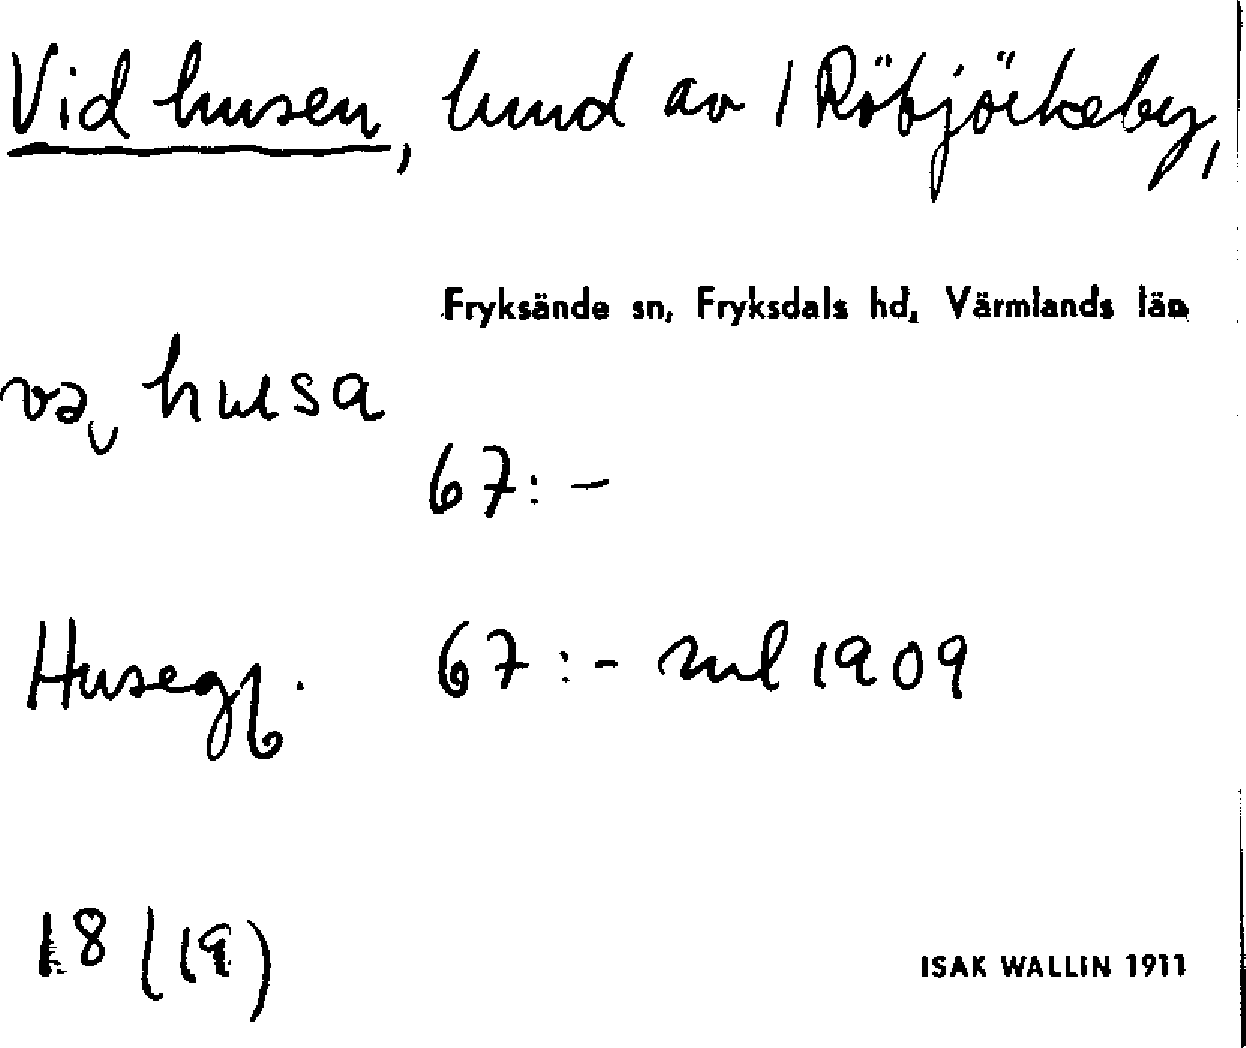 Vid husen, lund av 1 Röbjörkeby,
Fryksände sn, Fryksdals hd, Värmlands län
va husa
67:-
Huseg. 67:- ml 1909
18 (19)
ISAK WALLIN 1911